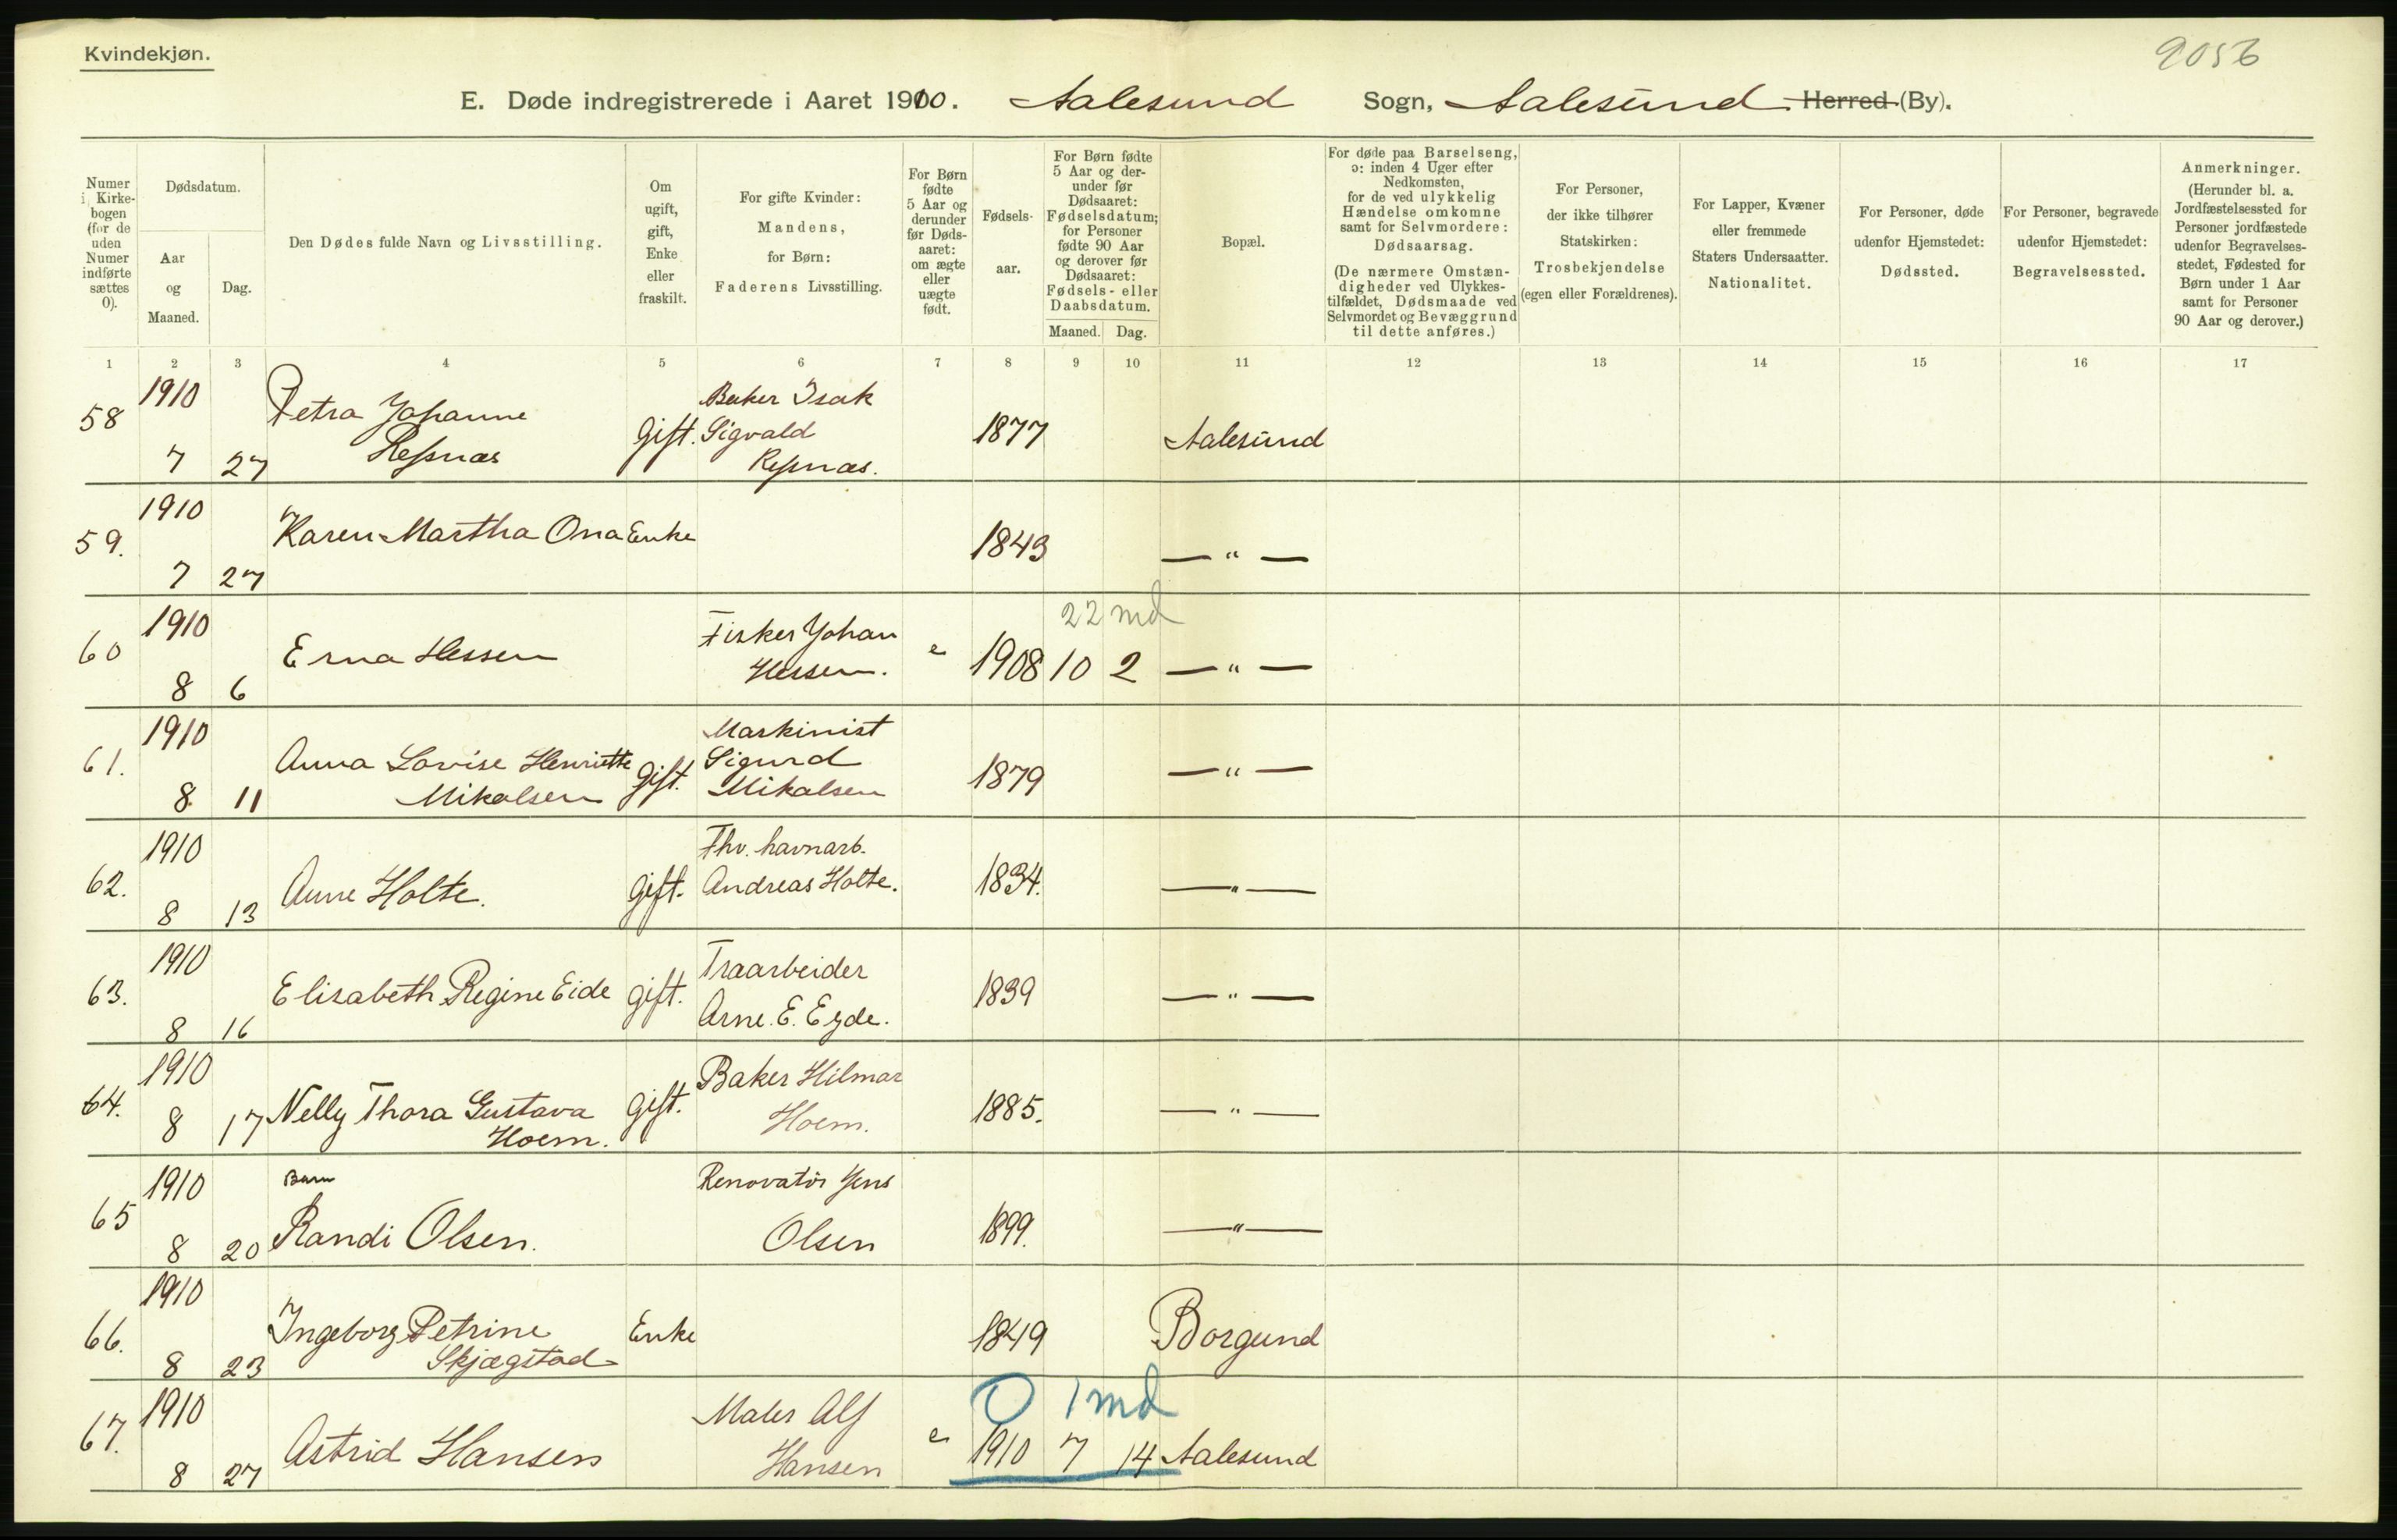 Kvindekjøn.
9056
E. Døde indregistrerede i Aaret 1910. Aalesund Sogn, Aalesund Herred (By).
Numer i Kirkebogen (for de uden Numer indførte sættes 0).
Dødsdatum.
Aar og Maaned.
Dag.
Den Dødes fulde Navn og Livsstilling.
Om ugift, gift, Enke eller fraskilt.
For gifte Kvinder: Mandens, for Børn: Faderens Livsstilling.
For Børn fødte 5 Aar og derunder før Dødsaaret: om ægte eller uægte født.
Fødselsaar.
For Børn fødte 5 Aar og derunder før Dødsaaret: Fødselsdatum; for Personer fødte 90 Aar og derover før Dødsaaret: Fødsels- eller Daabsdatum.
Maaned. Dag.
Bopæl.
For døde paa Barselseng, ɔ: inden 4 Uger efter Nedkomsten, for de ved ulykkelig Hændelse omkomne samt for Selvmordere: Dødsaarsag. (De nærmere Omstændigheder ved Ulykkestilfældet, Dødsmaade ved Selvmordet og Bevæggrund til dette anføres.)
For Personer, der ikke tilhører Statskirken: Trosbekjendelse (egen eller Forældrenes).
For Lapper, Kvæner eller fremmede Staters Undersaatter. Nationalitet.
For Personer, døde udenfor Hjemstedet: Dødssted.
For Personer, begravede udenfor Hjemstedet: Begravelsessted.
Anmerkninger. (Herunder bl. a. Jordfæstelsessted for Personer jordfæstede udenfor Begravelsesstedet, Fødested for Børn under 1 Aar samt for Personer 90 Aar og derover.)
1 2 3 4 5 6 7 8 9 10 11 12 13 14 15 16 17
58 1910 7 27 Petra Johanne Ressnæs gift. Baker Isak Sigvald Ressnæs. 1877 Aalesund
59. 1910 7 27 Karen Martha Ona Enke 1843 — " —
22 md
60 1910 8 6 Erna Hessen Fisker Johan Hessen. e 1908 10 2 — " —
61. 1910 8 11 Anna Lovise Henriette Mikalsen gift. Maskinist Sigurd Mikalsen 1879 — " —
62. 1910 8 13 Anne Holte. gift. Fhv. havnarb. Andreas Holte. 1834. — " —
63. 1910 8 16 Elisabeth Regine Eide gift. Træarbeider Arne. E. Eyde. 1839 — " —
64. 1910 8 17 Nelly Thora Gustava Hoem. gift. Baker Hilmar Hoem. 1885. — " —
65 1910 8 20 Barn Randi Olsen. Renovatör Jens Olsen 1899. — " —
66. 1910 8 23 Ingeborg Petrine Skjægstad Enke 1849 Borgund
0 1 md
67. 1910 8 27 Astrid Hansen Maler Alf Hansen e 1910 7 14 Aalesund